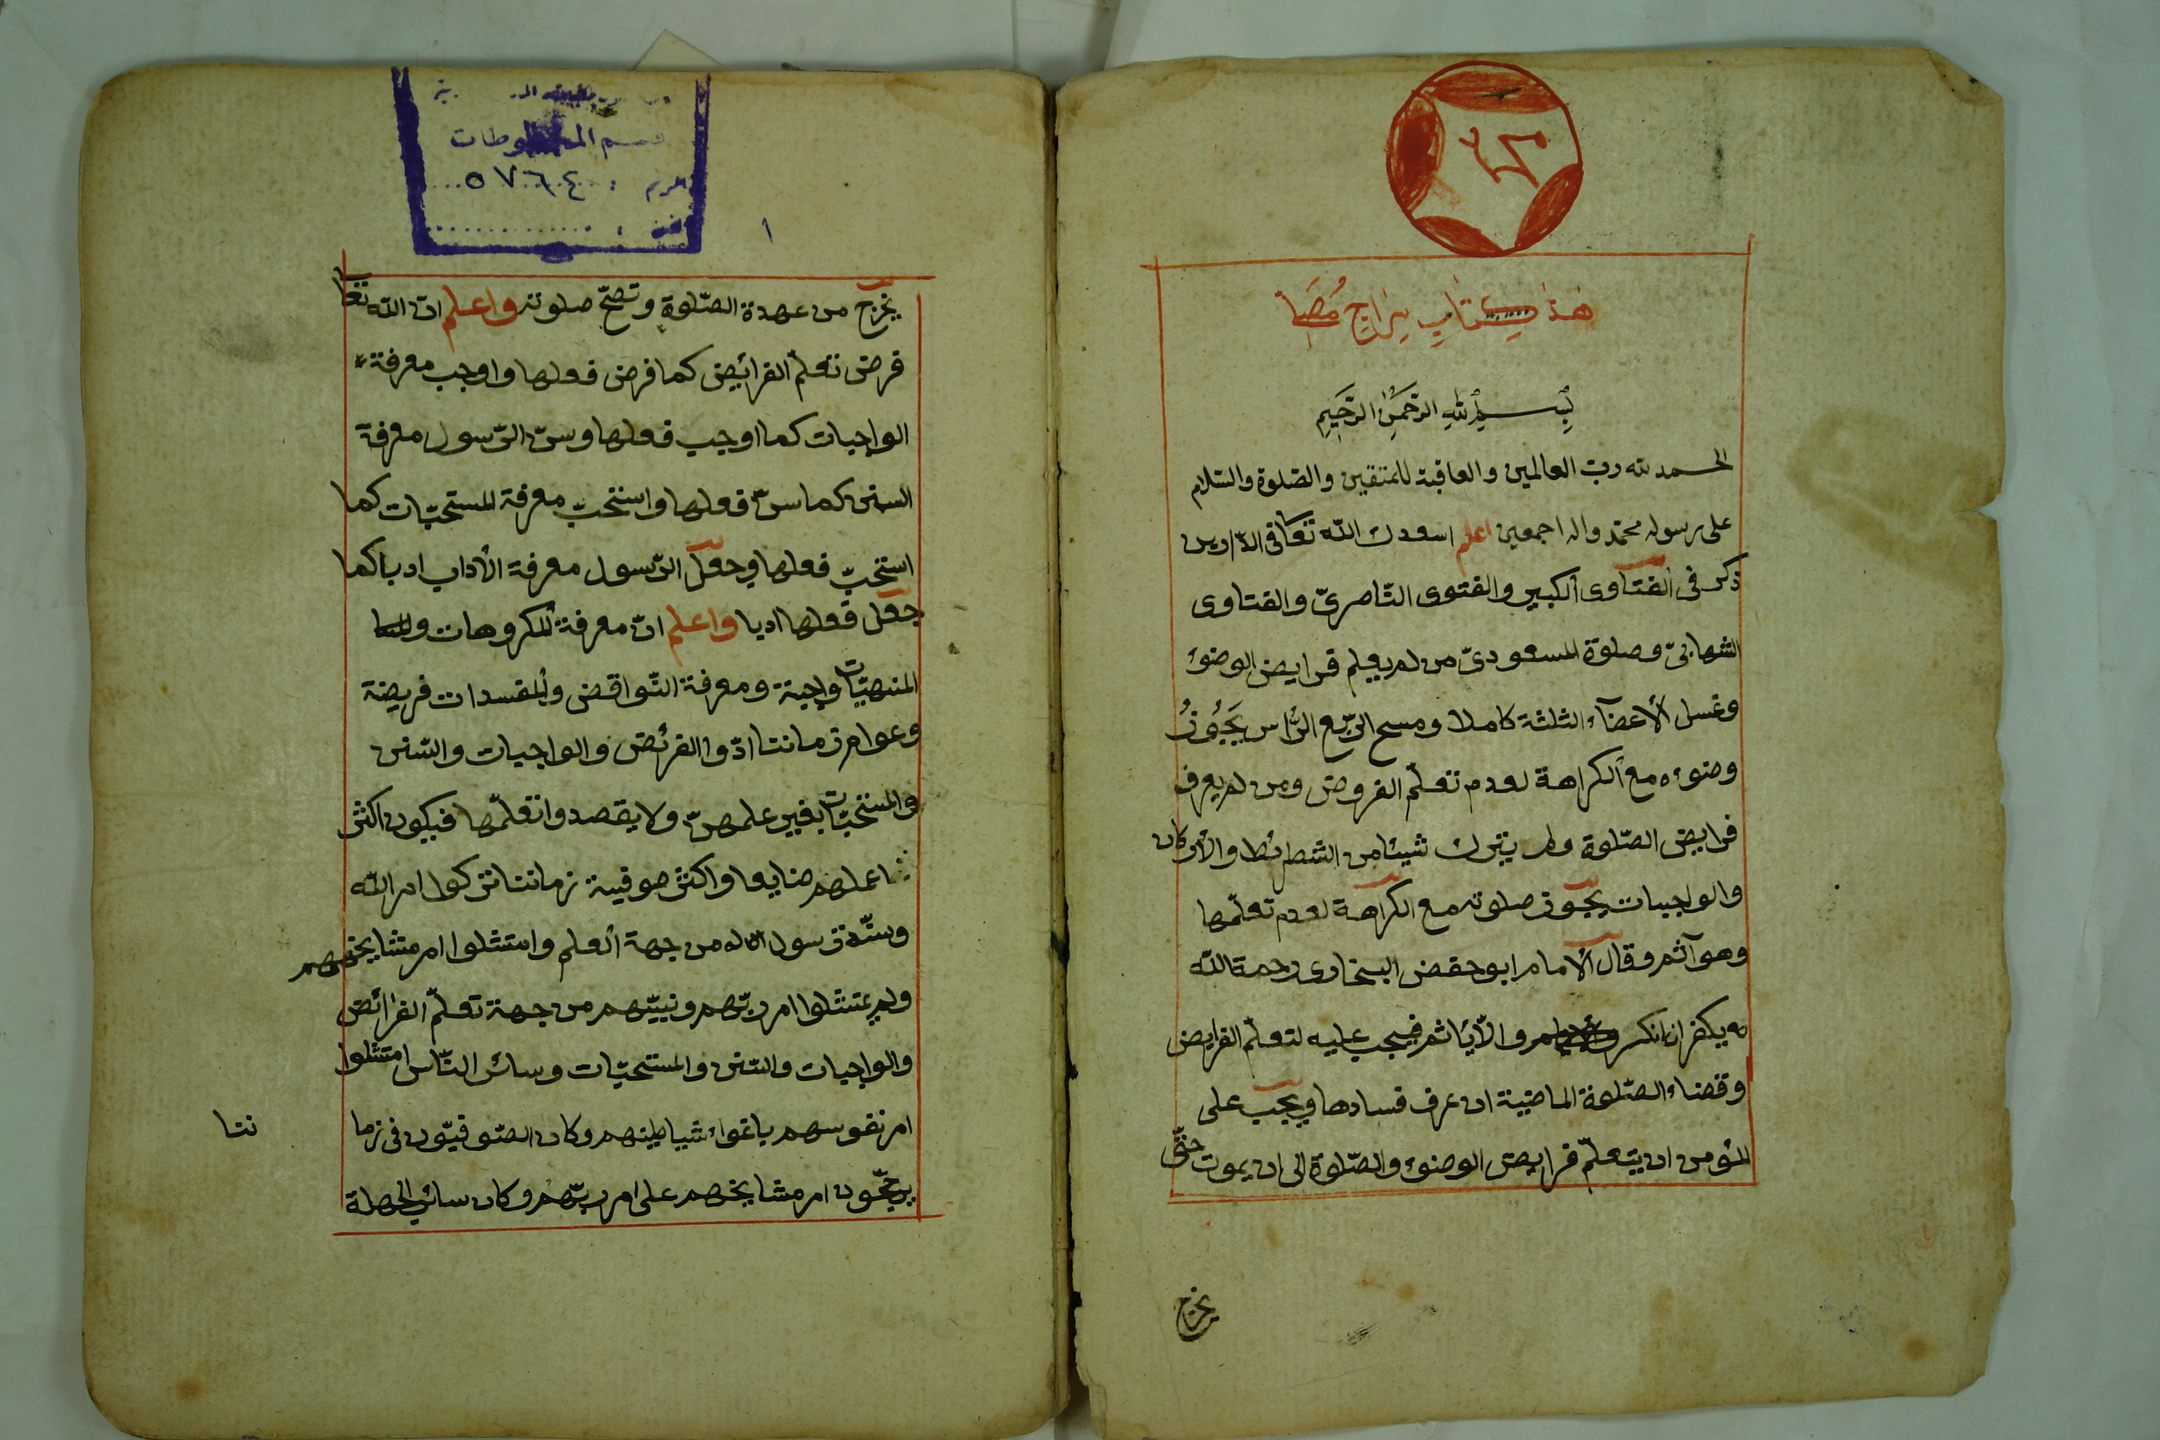 هذا كتاب سراج مصلي
بسم الله الرحمن الرحيم
الحمد لله رب العالمين والعاقبة للمتقين والصّلوة والسّلام
على رسوله محمّد واله اجمعين اعلم اسعدك الله تعا فى الدّارين
ذكر فى الفتاوى الكبير والفتوى النّاصرىّ والفتاوى
الشهابىّ وصلوة المسعودىّ من لم يعلم فرايض الوضوء
وغسل الأعضاء الثلثة كاملا ومسح الرّبع الرّاس يَجُوزُ
وضوءه مع الكراهة لعدم تعلّم الفروض ومن لم يعرف
فرايض الصّلوة ولم يترك شيئا من الشطرئط والأركان
والواجبات يجوز صلوته مع الكراهة لعدم تعلّمها
وهو آثم وقال الأمام ابو حفص البخارى رحمة الله
يكفر ان انكر والّا ياثم فيجب عليه لتعلّم الفرايض
وقضاء الصّلوة الماضية ان عرف فسادها ويجب على
المؤمن ان يتعلّم فرايض الوضوء والصّلوة الى ان يموت حتّى
يخرج
قسم المخطوطات
الرقم : ٥٧٦٤
الفن :
١
يخرج من عهدة الصّلوة وتصحّ صلوته واعلم انّ الله تعا
فرض تعلّم الفرائض كما فرض فعلها واوجب معرفة
الواجبات كما اوجب فعلها وسنّ الرّسول معرفة
السنن كما سنّ فعلها واستحبّ معرفة المستحبّات كما
استحبّ فعلها وجعل الرّسول معرفة الأداب ادبا كما
جعل فعلها ادبا واعلم انّ معرفة المكروهات و
المنهيّات واجبة ومعرفة النّواقض والمفسدات فريضة
وعوام زماننا ادّوا الفرئض والواجبات والسّنن
والمستحبّات بغير علمهنّ ولا يقصدوا تعلّمها فيكون اكثر
اعملهم ضايعا واكثر صوفية زماننا تركوا امر الله
وسنّة رسول الله من جهة العلم وامتثلوا امر مشايخهم
ولم يمتثلوا امر ربّهم ونبيّهم من جهة تعلّم الفرائض
والواجبات والسّنن والمستحبّات وسائر النّاس امتثلوا
امر نفوسهم باغواء شياطينهم وكان الصّوفيّون فى زما
ننا
يرجّحون امر مشايخهم على امر ربّهم وكان سائر الجهلة